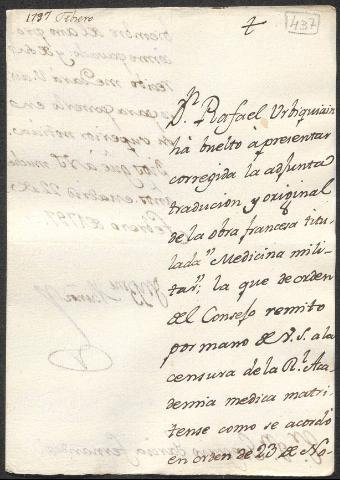 1797 Febrero
437
Dn. Rafael Urbiquiain
ha buelto a presentar
corregida la adjunta
tradución y original
de la obra francesa titu-
lada "Medicina mili-
tar"; la que de orden
del Consejo remito
por mano de V. S. a la
censura de la Rl. Aca-
demia medica matri-
tense como se acordó
en orden de 23 de No-